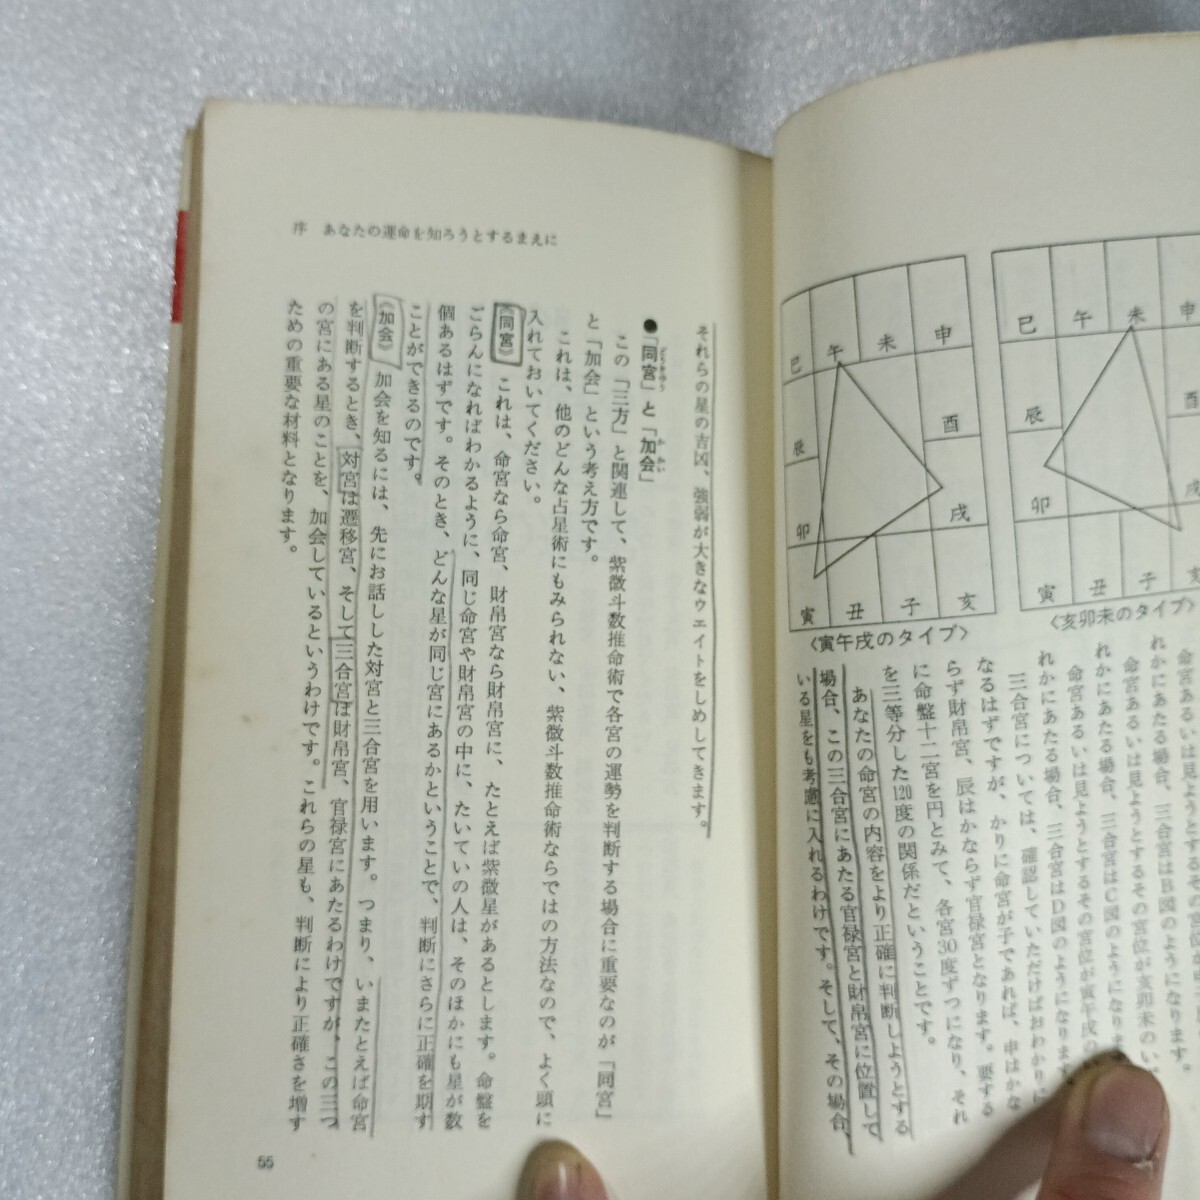 巳 午 未 申
辰 酉
卯 戌
寅 丑 子 亥
〈亥卯未のタイプ〉
巳 午 未 申
辰 酉
卯 戌
寅 丑 子 亥
〈寅午戌のタイプ〉
命宮あるいは見ようとするその宮
れかにあたる場合、三合宮はB図のようになります。
命宮あるいは見ようとするその宮位が亥卯未のい
れかにあたる場合、三合宮はC図のようになりま
命宮あるいは見ようとするその宮位が寅午戌の
れかにあたる場合、三合宮はD図のようになります
三合宮については、確認していただけばおわかりに
なるはずですが、かりに命宮が子であれば、申はかな
らず財帛宮、辰はかならず官禄宮となります。要する
に命盤十二宮を円とみて、各宮30度ずつになり、それ
を三等分した120度の関係だということです。
あなたの命宮の内容をより正確に判断しようとする
場合、この三合宮にあたる官禄宮と財帛宮に位置して
いる星をも考慮に入れるわけです。そして、その場合、
序 あなたの運命を知ろうとするまえに
それらの星の吉凶、強弱が大きなウエイトをしめしてきます。
●「同宮」と「加会」
この「三方」と関連して、紫微斗数推命術で各宮の運勢を判断する場合に重要なのが「同宮」
と「加会」という考え方です。
これは、他のどんな占星術にもみられない、紫微斗数推命術ならではの方法なので、よく頭に
入れておいてください。
《同宮》 これは、命宮なら命宮、財帛宮なら財帛宮に、たとえば紫微星があるとします。命盤を
ごらんになればわかるように、同じ命宮や財帛宮の中に、たいていの人は、そのほかにも星が数
個あるはずです。そのとき、どんな星が同じ宮にあるかということで、判断にさらに正確を期す
ことができるのです。
《加会》 加会を知るには、先にお話しした対宮と三合宮を用います。つまり、いまたとえば命宮
を判断するとき、対宮は遷移宮、そして三合宮は財帛宮、官禄宮にあたるわけですが、この三つ
の宮にある星のことを、加会しているというわけです。これらの星も、判断により正確さを増す
ための重要な材料となります。
55